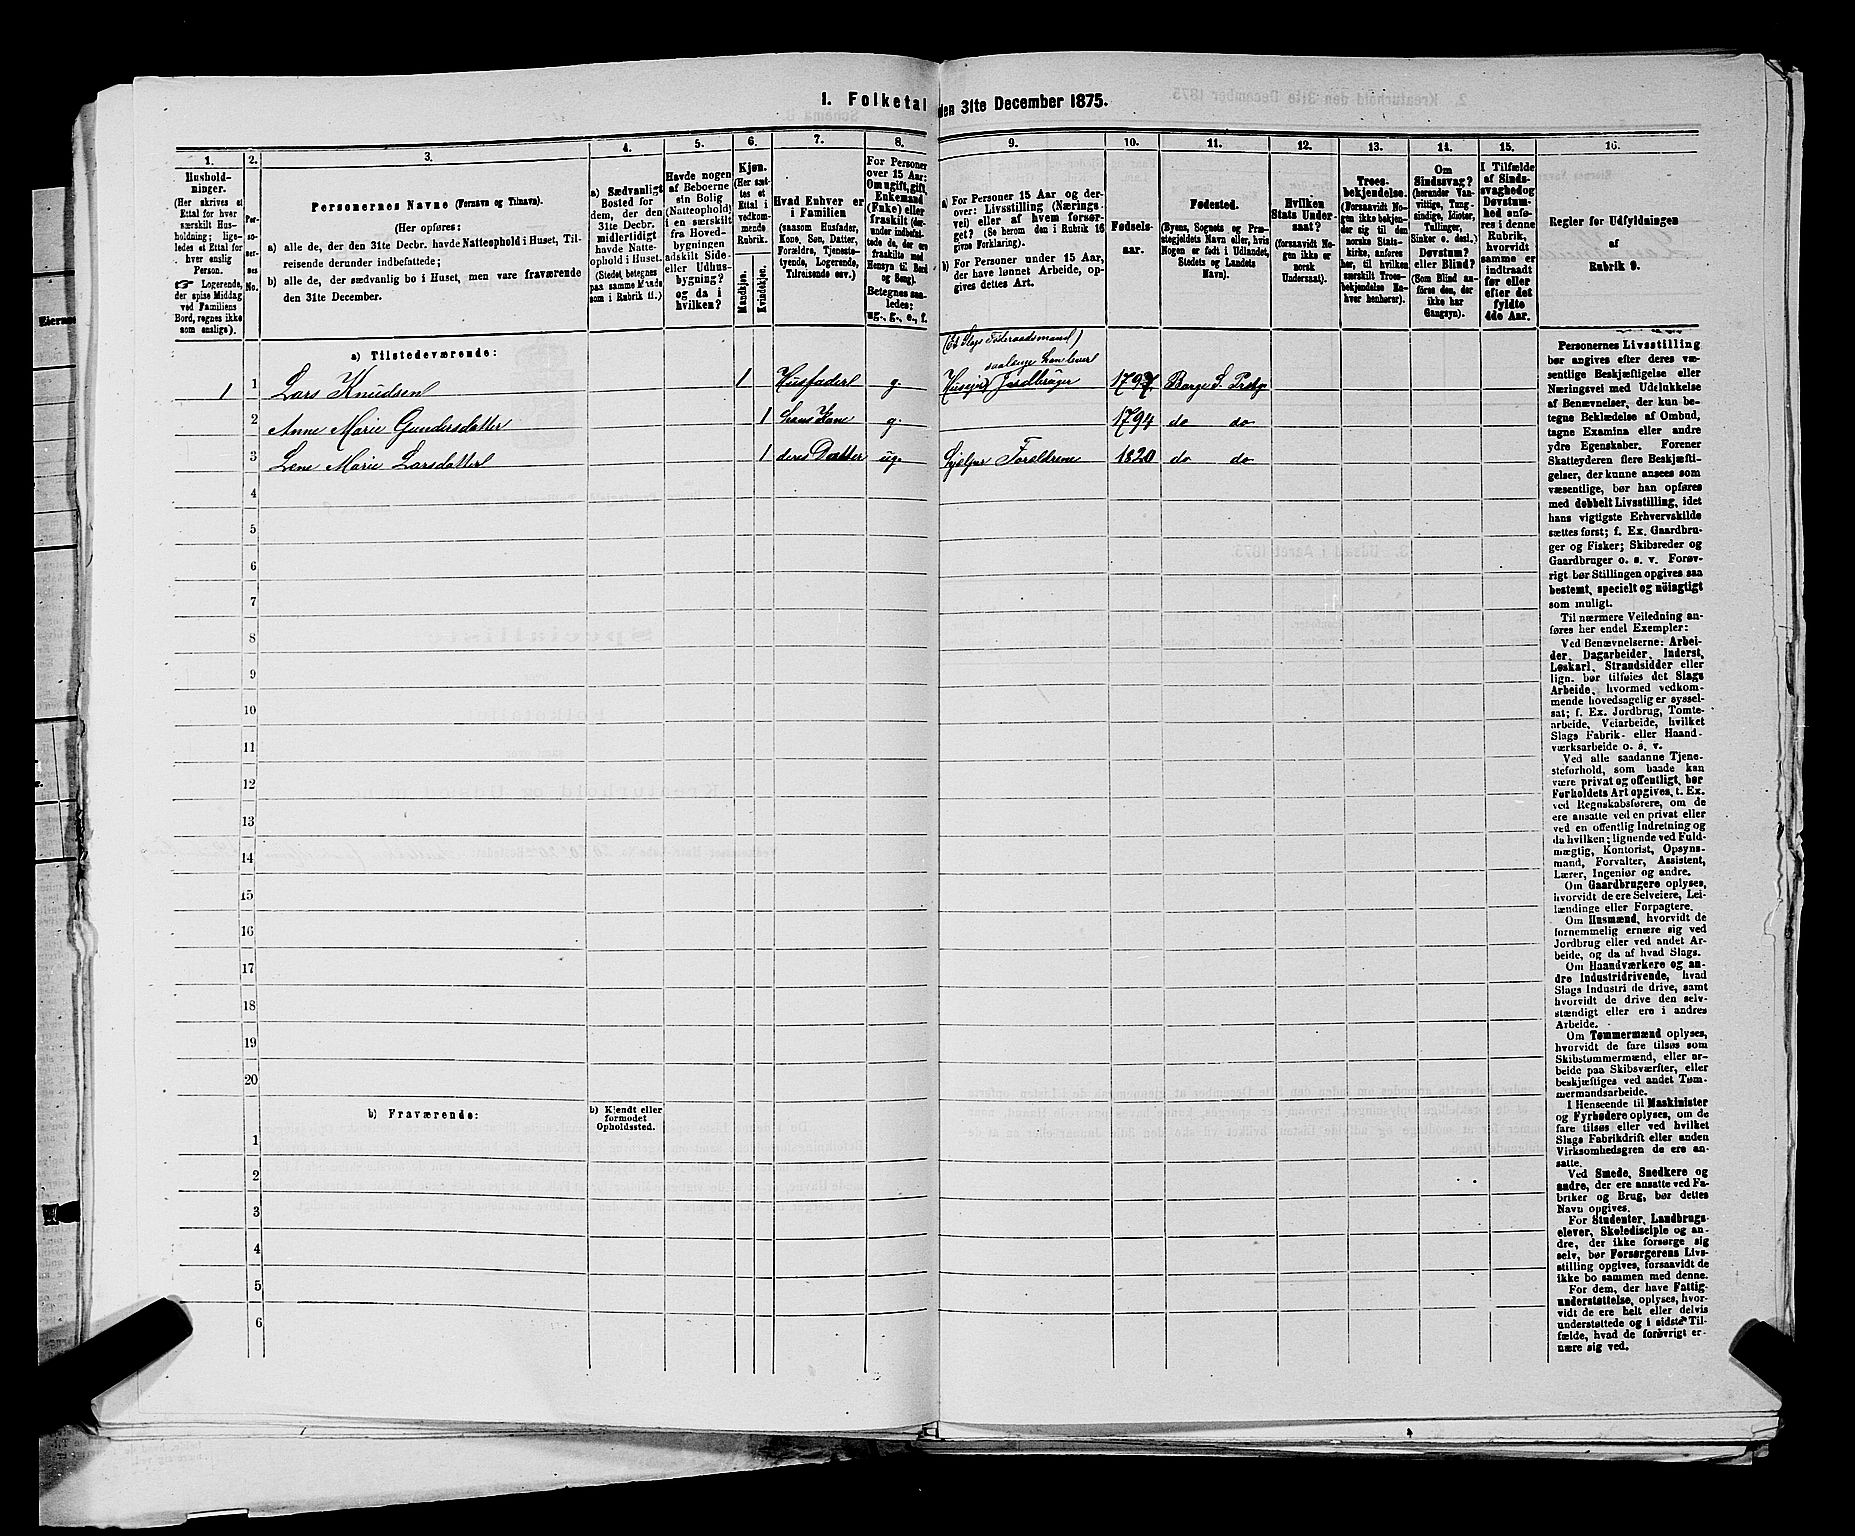 1. Folketal den 31te December 1875.
1.
2.
3.
4.
5.
6.
7.
8.
9.
10.
11.
12.
13.
14.
15.
16.
Husholdninger.
(Her skrives et
Ettal for hver
særskilt Husholdning; ligeledes
et Ettal for
hver enslig
Person.
☞ Logerende,
der spise Middag
ved Familiens
Bord, regnes ikke
som enslige).
Personernes No.
Personernes Navne (Fornavn og Tilnavn).
(Her opføres:
a) alle de, der den 31te Decbr. havde Natteophold i Huset, Tilreisende derunder indbefattede;
b) alle de, der sædvanlig bo i Huset, men vare fraværende
den 31te December.
a) Sædvanligt
Bosted for
dem, der den
31te Decbr.
midlertidigt
havde Natteophold i Huset.
(Stedet, betegnes
paa samme Maade
som i Rubrik 11.)
Havde nogen
af Beboerne
sin Bolig
(Natteophold)
i en særskilt
fra Hovedbygningen
adskilt Side-
eller Udhusbygning?
og da i
hvilken?
Kjøn.
(Her sættes et
Ettal i
vedkommende
Rubrik.
Mandkjøn.
Kvindekjøn.
Hvad Enhver er
i Familien
(saasom Husfader,
Kone, Søn, Datter,
Forældre, Tjenestetyende, Logerende,
Tilreisende osv.)
For Personer
over 15 Aar:
Om ugift, gift,
Enkemand
(Enke) eller
fraskilt (derunder indbefattede de, der ere
fraskilte med
Hensyn til Bord
og Seng).
Betegnes saaledes:
ug., g., e., f.
a) For Personer 15 Aar og derover: Livsstilling (Næringsvei) eller af hvem forsørget? (Se herom den i Rubrik 16
givne Forklaring).
b) For Personer under 15 Aar,
der have lønnet Arbeide, opgives dettes Art.
Fødselsaar.
Fødested.
(Byens, Sognets og Præstegjeldets Navn eller, hvis
Nogen er født i Udlandet,
Stedets og Landets
Navn).
Hvilken
Stats Undersaat?
(forsaavidt Nogen ikke er
norsk
Undersaat).
Troesbekjendelse.
(Forsaavidt Nogen ikke bekjender sig til den
norske Statskirke, anføres
her, til hvilken
særskilt Troesbekjendelse Enhver henhører).
Om
Sindssvag?
(herunder Vanvittige, Tungsindige, Idioter,
Tullinger,
Sinker o. desl.)
Døvstum?
eller Blind?
(Som Blind anføres den, der
ikke har
Gangsyn).
I Tilfælde
af Sindssvaghed og
Døvstumhed anføres i denne
Rubrik,
hvorvidt
samme er
indtraadt
før eller
efter det
fyldte
4de Aar.
Regler for Udfyldningen
af
Rubrik 9.
a) Tilstedeværende:
(Et Slags Føderaadsmand)
saalænge han lever
1 1 Lars Knudsen 1 Husfader g. Huseier Jordbruger 1797 Borge S. Prstgj
2 Anne Marie Gundersdatter 1 hans Kone g. 1794 do do
3 Lene Marie Larsdatter 1 deres Datter ug. hjelper Forældrene 1820 do do
4
5
6
7
8
9
10
11
12
13
14
15
16
17
18
19
20
b) Fraværende:
b) Kjendt eller
formodet
Opholdssted.
1
2
3
4
5
6
Personernes Livsstilling
bør angives efter deres væsentlige Beskjæftigelse eller
Næringsvei med Udelukkelse
af Benævnelser, der kun betegne Beklædelse af Ombud,
tagne Examina eller andre
ydre Egenskaber. Forener
Skatteyderen flere Beskjæftigelser, der kunne ansees som
væsentlige, bør han opføres
med dobbelt Livsstilling, idet
hans vigtigste Erhvervskilde
sættes først; f. Ex. Gaardbruger og Fisker; Skibsreder og
Gaardbruger o. s. v. Forøvrigt bør Stillingen opgives saa
bestemt, specielt og nöiagtigt
som muligt.
Til nærmere Veiledning anføres her endel Exempler:
Ved Benævnelserne: Arbeider, Dagarbeider, Inderst,
Løskarl, Strandsidder eller
lign. bør tilføies det Slags
Arbeide, hvormed vedkommende hovedsagelig er sysselsat; f. Ex. Jordbrug, Tomtearbeide, Veiarbeide, hvilket
Slags Fabrik- eller Haandværksarbeide o. s. v.
Ved alle saadanne Tjenesteforhold, som baade kan
være privat og offentligt, bør
Forholdets Art opgives, t. Ex.
ved Regnskabsførere, om de
ere ansatte ved en privat eller
ved en offentlig Indretning og
da hvilken; lignende ved Fuldmægtig, Kontorist, Opsynsmand, Forvalter, Assistent,
Lærer, Ingeniør og andre.
Om Gaardbrugere oplyses,
hvorvidt de ere Selveiere, Leilændinge eller Forpagtere.
Om Husmænd, hvorvidt de
fornemmelig ernære sig ved
Jordbrug eller ved andet Arbeide, og da af hvad Slags.
Om Haandværkere og andre Industridrivende, hvad
Slags Industri de drive, samt
hvorvidt de drive den selvstændigt eller ere i andres
Arbeide.
Om Tømmermænd oplyses,
hvorvidt de fare tilsøs som
Skibstømmermænd, eller arbeide paa Skibsværfter, eller
beskjæftiges ved andet Tømmermandsarbeide.
I Henseende til Maskinister
og Fyrbødere oplyses, om de
fare tilsøs eller ved hvilket
Slags Fabrikdrift eller anden
Virksomhedsgren de ere ansatte.
Ved Smede, Snedkere og
andre, der ere ansatte ved Fabriker og Brug, bør dettes
Navn opgives.
For Studenter, Landbrugselever, Skoledisciple og andre, der ikke forsørge sig
selv, bør Forsørgerens Livsstilling opgives, forsaavidt de
ikke bo sammen med denne.
For dem, der have Fattigunderstøttelse, oplyses, hvorvidt de ere helt eller delvis
understøttede og i sidste Tilfælde, hvad de forøvrigt ernære sig ved.